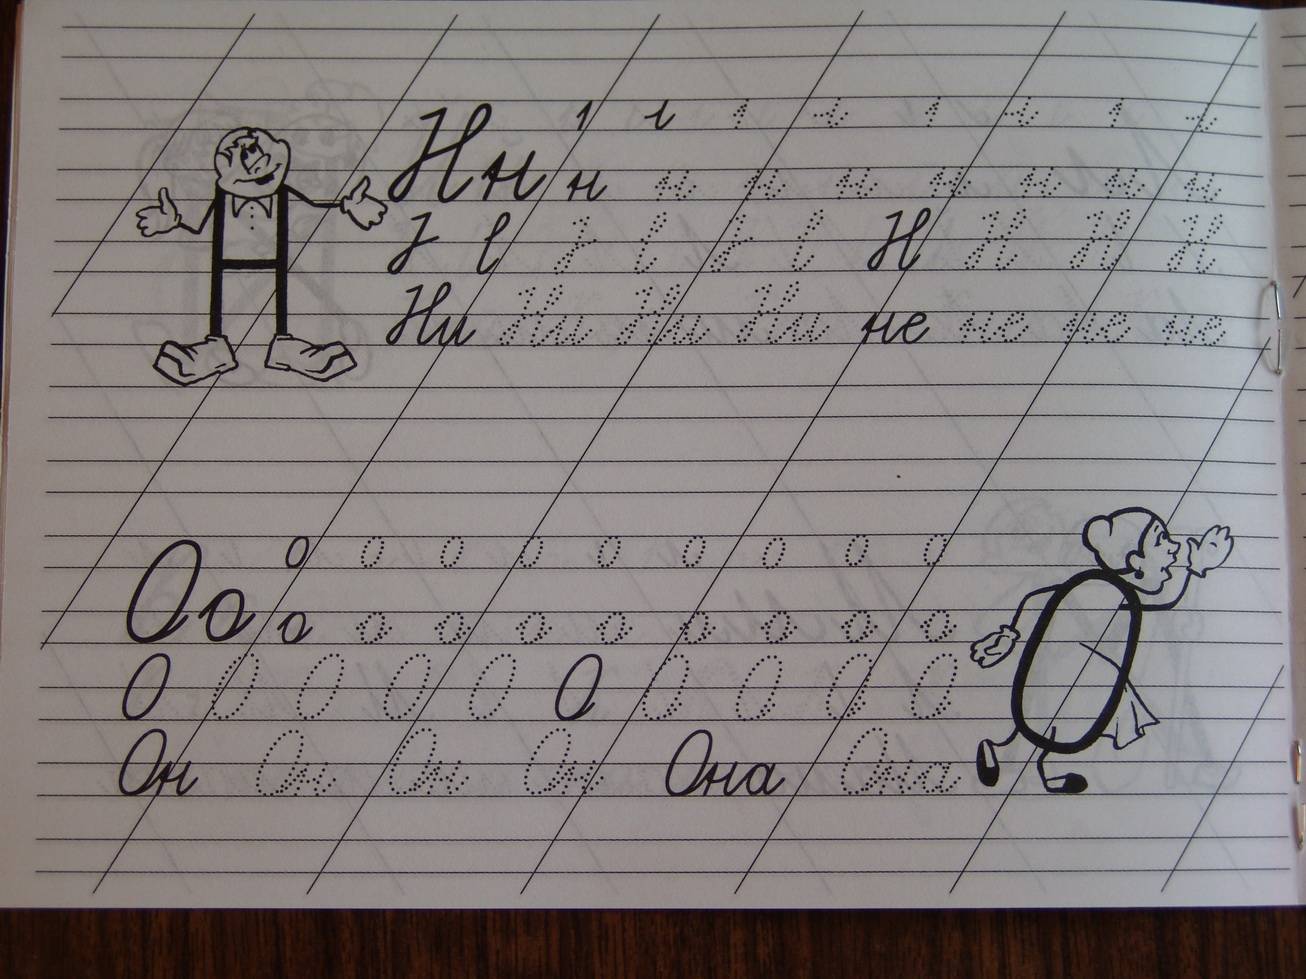 Нн н н н н н н н н
Н Н Н Н
Ни Ни Ни Ни не не не не
Оо о о о о о о о о о
о о о о о о о о о
О О О О О О О О О О
Он Он Он Он Она Она